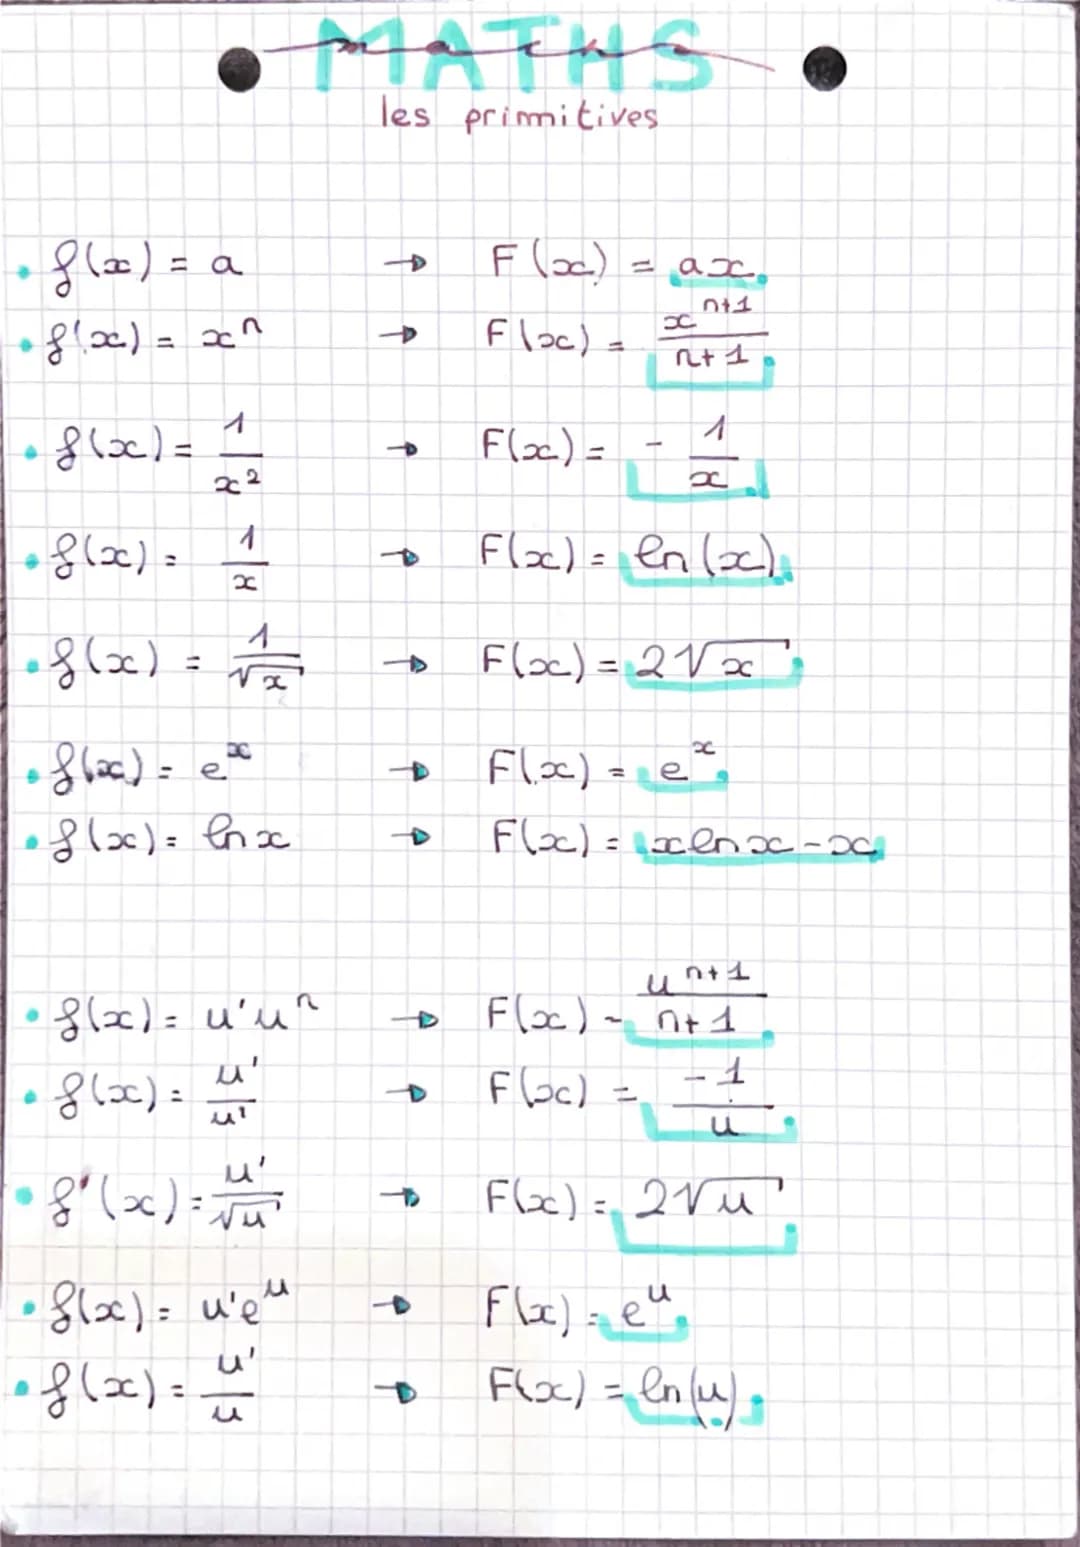 MATHS
les primitives
• f(x) = a → F(x) = ax
• f(x) = xⁿ → F(x) = xⁿ⁺¹/n+1
• f(x) = 1/x² → F(x) = - 1/x
• f(x) = 1/x → F(x) = ln(x)
• f(x) = 1/√x → F(x) = 2√x
• f(x) = eˣ → F(x) = eˣ
• f(x) = ln x → F(x) = x ln x - x
• f(x) = u'uⁿ → F(x) = uⁿ⁺¹/n+1
• f(x) = u'/u' → F(x) = -1/u
• f'(x) = u'/√u → F(x) = 2√u
• f(x) = u'eᵘ → F(x) = eᵘ
• f(x) = u'/u → F(x) = ln(u)